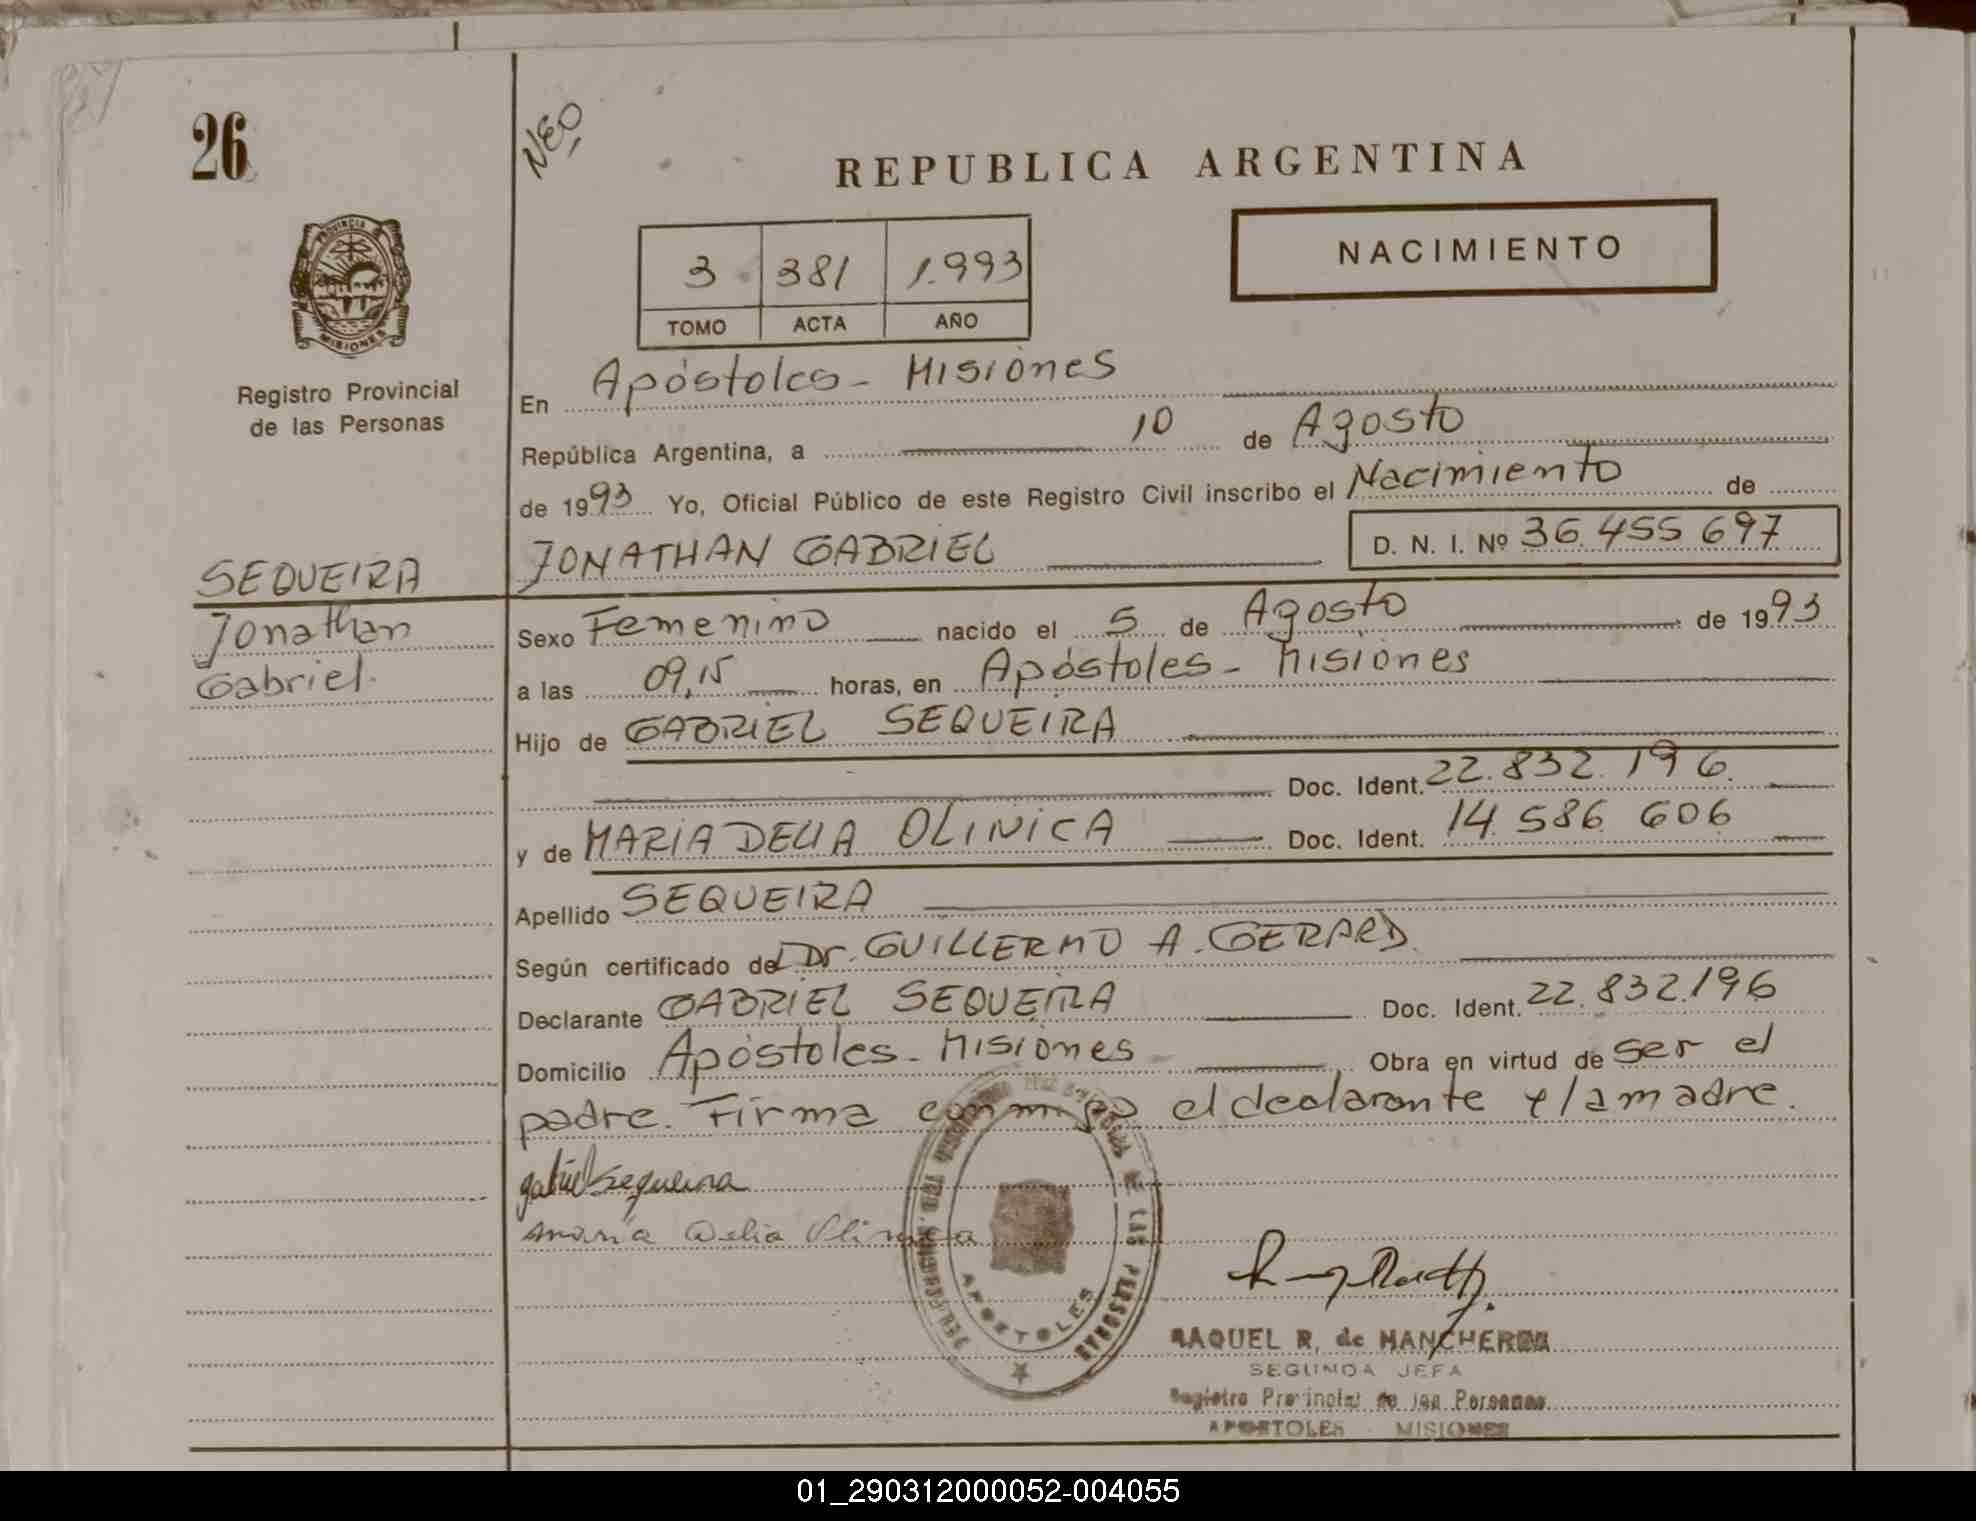 26
NEO
REPUBLICA ARGENTINA
NACIMIENTO
3 381 1.993
TOMO ACTA AÑO
PROVINCIA DE
MISIONES
Registro Provincial
de las Personas
En Apóstoles - Misiones
República Argentina, a 10 de Agosto
de 1993 Yo, Oficial Público de este Registro Civil inscribo el Nacimiento de
JONATHAN GABRIEL D. N. I. Nº 36.455 697
SEQUEIRA
Jonathan
Gabriel.
Sexo Femenino nacido el 5 de Agosto de 1993
a las 09,15 horas, en Apóstoles - Misiones
Hijo de GABRIEL SEQUEIRA
Doc. Ident. 22.832.196.
y de MARIA DELIA OLINICA Doc. Ident. 14.586 606
Apellido SEQUEIRA
Según certificado del Dr. GUILLERMO A. GERARD.
Declarante GABRIEL SEQUEIRA Doc. Ident. 22.832.196
Domicilio Apóstoles - Misiones Obra en virtud de ser el
padre. Firma conmigo el declarante y la madre.
gabriel sequeira
maria Delia Olinica
DE LAS PERSONAS
APOSTOLES
RAQUEL R. de
SEGUNDA JEFA
Registro Provincial de las Personas
APOSTOLES MISIONES
01_290312000052-004055